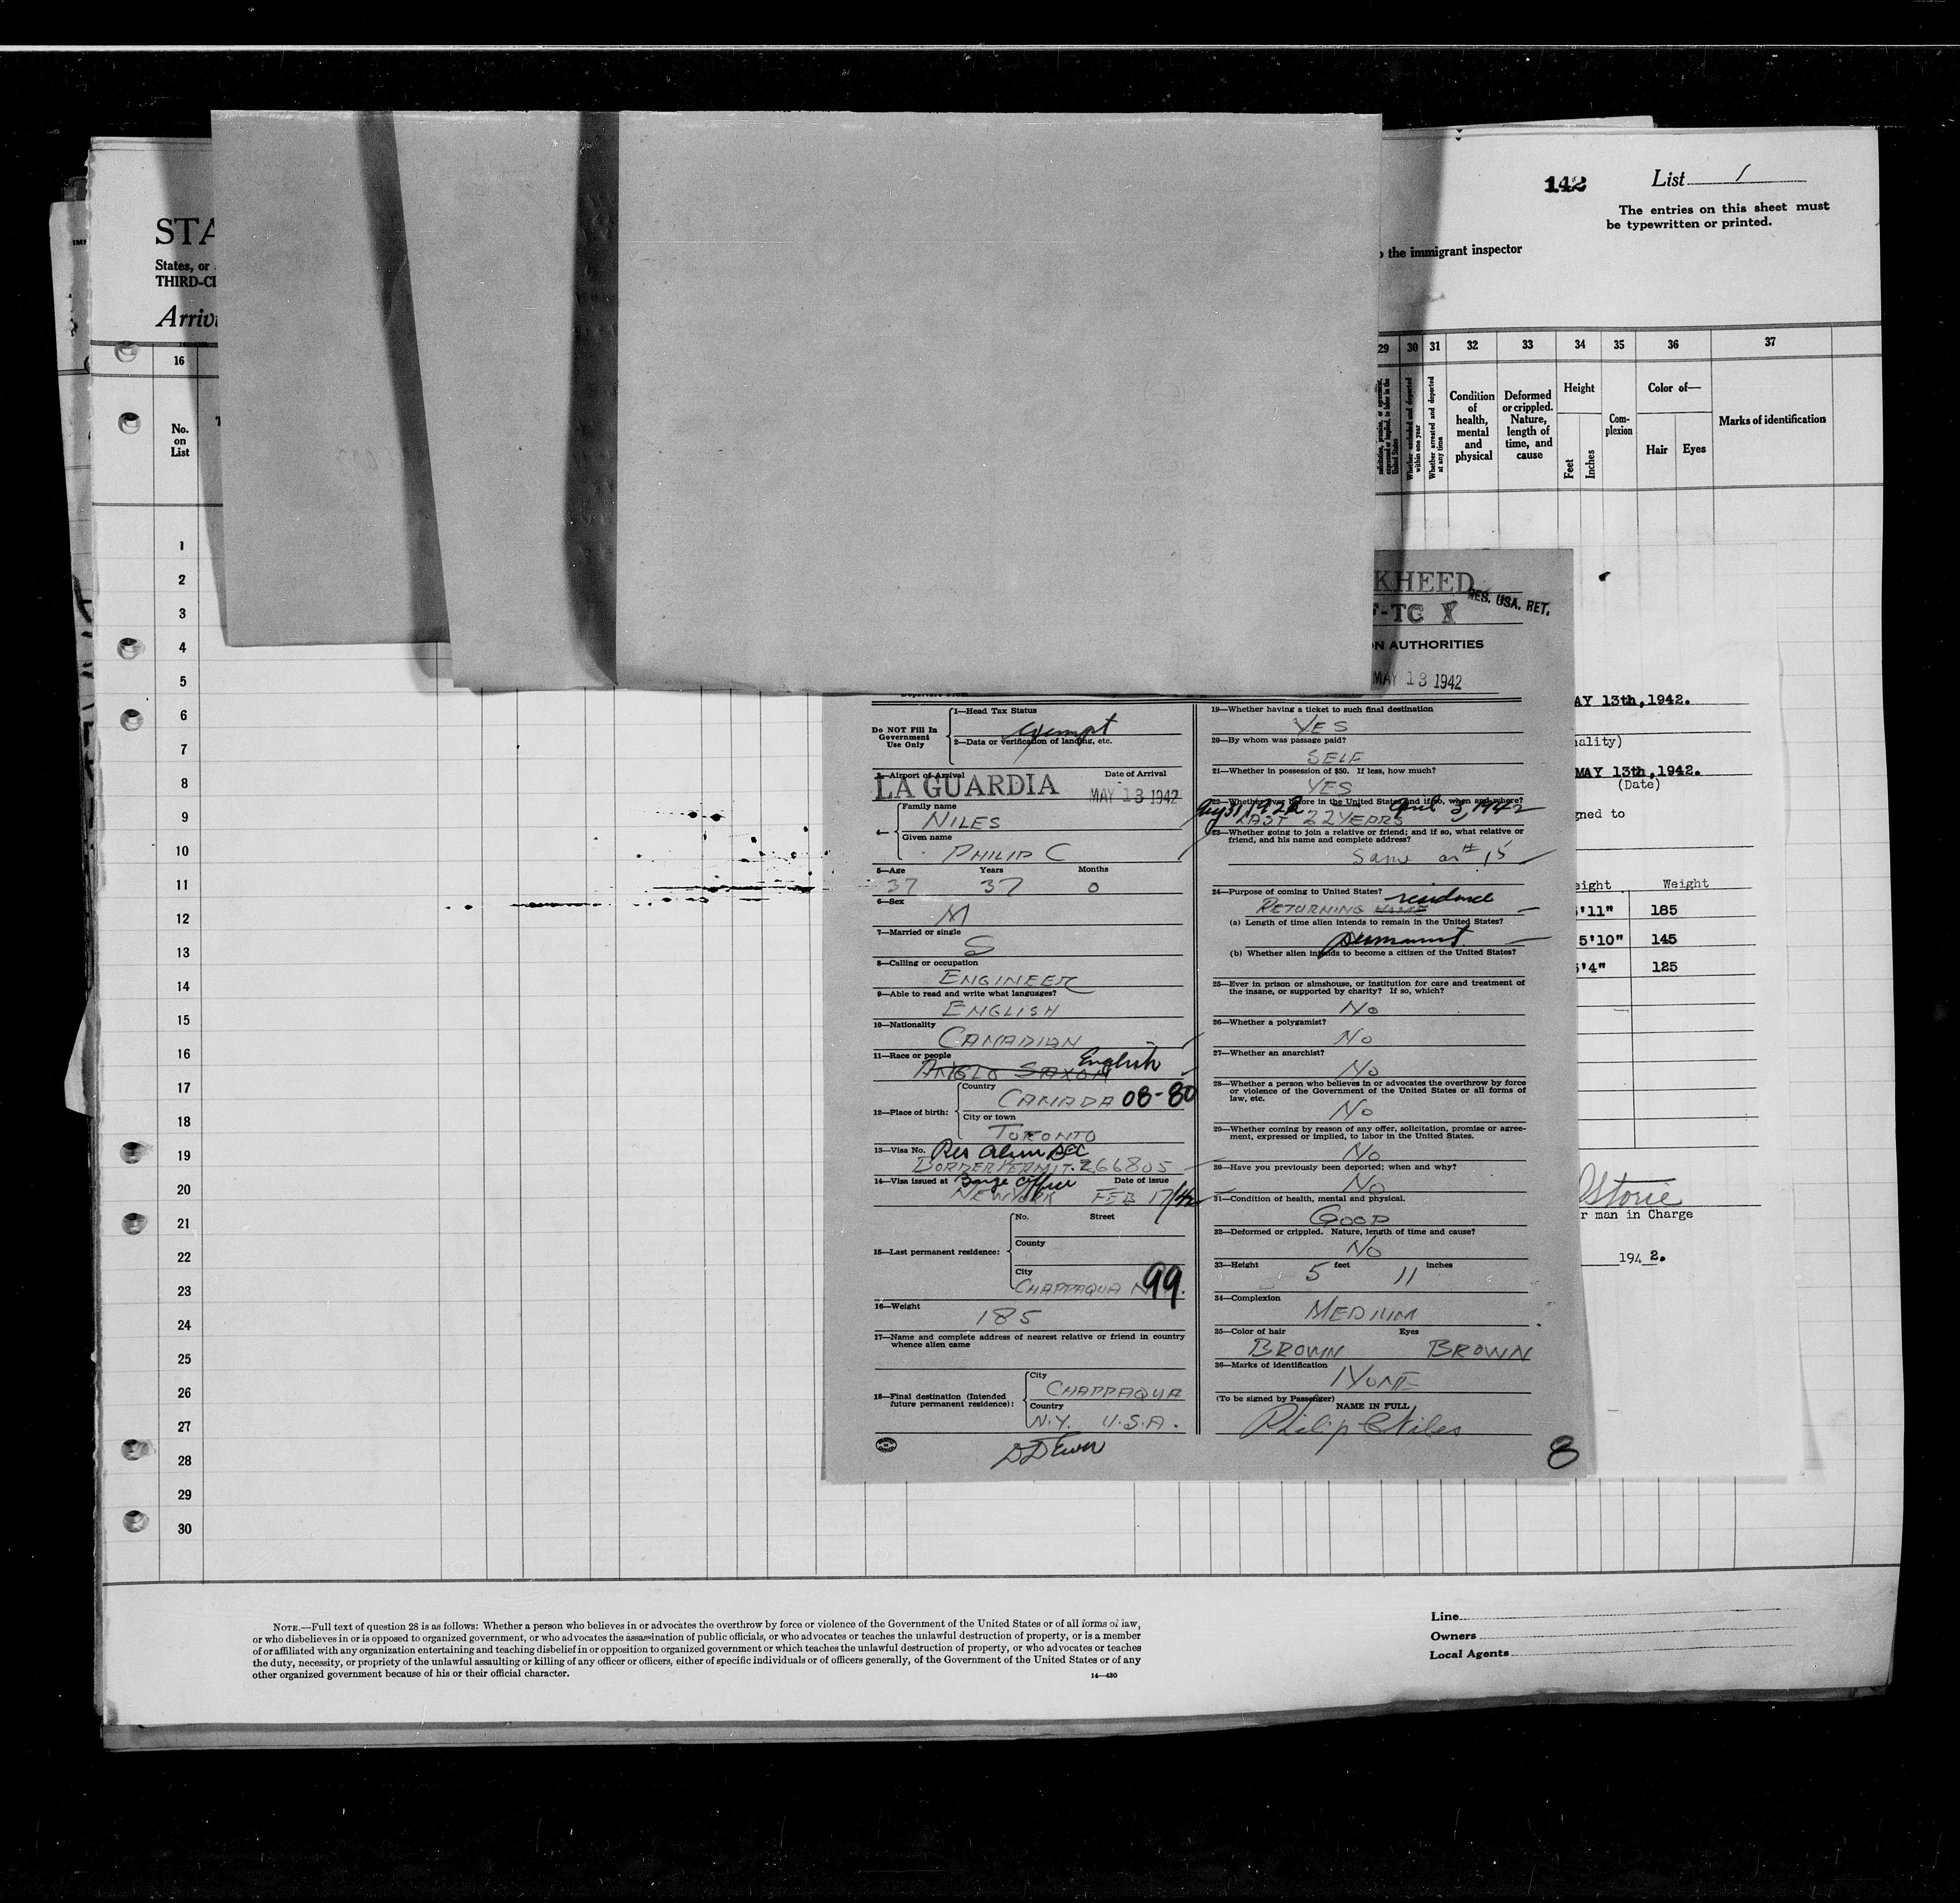 142
List 1
The entries on this sheet must
be typewritten or printed.
STA
States, or
THIRD-CL
the immigrant inspector
Arriv
16
29 30 31 32 33 34 35 36 37
No.
on
List
solicitation, promise, or agreement,
expressed or implied, to labor in the
United States
Whether excluded and deported
within one year
Whether arrested and deported
at any time
Condition
of
health,
mental
and
physical
Deformed
or crippled.
Nature,
length of
time, and
cause
Height
Feet
Inches
Com-
plexion
Color of—
Hair
Eyes
Marks of identification
1
2
3
4
5
6
7
8
9
10
11
12
13
14
15
16
17
18
19
20
21
22
23
24
25
26
27
28
29
30
KHEED
RES. USA. RET.
F-TC X
ON AUTHORITIES
MAY 13 1942
Do NOT Fill In
Government
Use Only
1—Head Tax Status
exempt
2—Data or verification of landing, etc.
3—Airport of Arrival
Date of Arrival
LA GUARDIA
MAY 13 1942
4—
Family name
NILES
Given name
PHILIP C
5—Age Years Months
37 37 0
6—Sex
M
7—Married or single
S
8—Calling or occupation
ENGINEER
9—Able to read and write what languages?
ENGLISH
10—Nationality
CANADIAN
11—Race or people
ANGLO SAXON English
12—Place of birth:
Country
CANADA 08-80
City or town
TORONTO
13—Visa No. Res Alien
BORDER PERMIT. 266805
14—Visa issued at Barge Office Date of issue
NEW YORK FEB 17/42
15—Last permanent residence:
No. Street
County
City
CHAPPAQUA N 99.
16—Weight
185
17—Name and complete address of nearest relative or friend in country
whence alien came
18—Final destination (Intended
future permanent residence):
City
CHAPPAQUA
Country
N.Y. U.S.A.
19—Whether having a ticket to such final destination
YES
20—By whom was passage paid?
SELF
21—Whether in possession of $50. If less, how much?
YES
22—Whether ever before in the United States and if so, when and where?
April 3, 1942
LAST 22 YEARS
23—Whether going to join a relative or friend; and if so, what relative or
friend, and his name and complete address?
Same as # 15
24—Purpose of coming to United States?
RETURNING HOME residence
(a) Length of time alien intends to remain in the United States?
permanent
(b) Whether alien intends to become a citizen of the United States?
25—Ever in prison or almshouse, or institution for care and treatment of
the insane, or supported by charity? If so, which?
NO
26—Whether a polygamist?
NO
27—Whether an anarchist?
NO
28—Whether a person who believes in or advocates the overthrow by force
or violence of the Government of the United States or all forms of
law, etc.
NO
29—Whether coming by reason of any offer, solicitation, promise or agree-
ment, expressed or implied, to labor in the United States.
NO
30—Have you previously been deported; when and why?
NO
31—Condition of health, mental and physical.
GOOD
32—Deformed or crippled. Nature, length of time and cause?
NO
33—Height 5 feet 11 inches
34—Complexion
MEDIUM
35—Color of hair Eyes
BROWN BROWN
36—Marks of identification
NONE
(To be signed by Passenger)
NAME IN FULL
Philip C Niles
8
AY 13th,1942.
nality)
MAY 13th,1942.
(Date)
gned to
eight Weight
'11" 185
5'10" 145
'4" 125
r man in Charge
194 2.
NOTE.—Full text of question 28 is as follows: Whether a person who believes in or advocates the overthrow by force or violence of the Government of the United States or of all forms of law,
or who disbelieves in or is opposed to organized government, or who advocates the assassination of public officials, or who advocates or teaches the unlawful destruction of property, or is a member
of or affiliated with any organization entertaining and teaching disbelief in or opposition to organized government or which teaches the unlawful destruction of property, or who advocates or teaches
the duty, necessity, or propriety of the unlawful assaulting or killing of any officer or officers, either of specific individuals or of officers generally, of the Government of the United States or of any
other organized government because of his or their official character.
14—430
Line
Owners
Local Agents